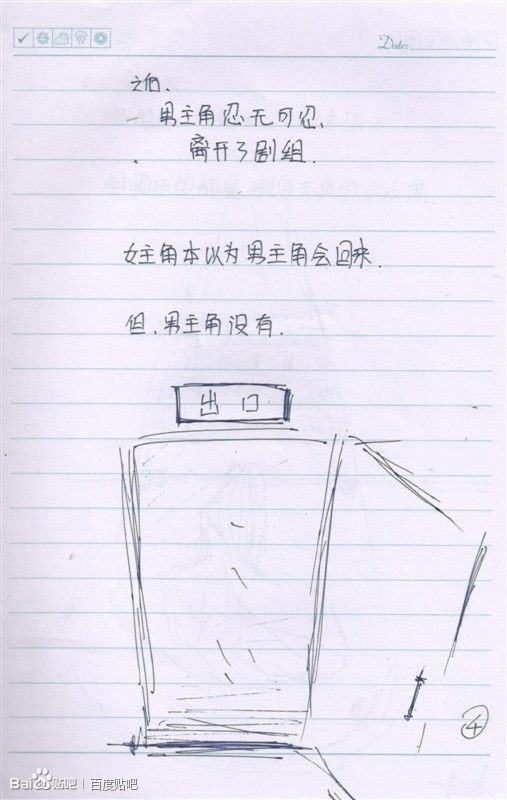 Date:
之后.
男主角忍无可忍、
离开了剧组.
女主角本以为男主角会回来.
但、男主角没有.
出口
④
Bai贴吧 | 百度贴吧